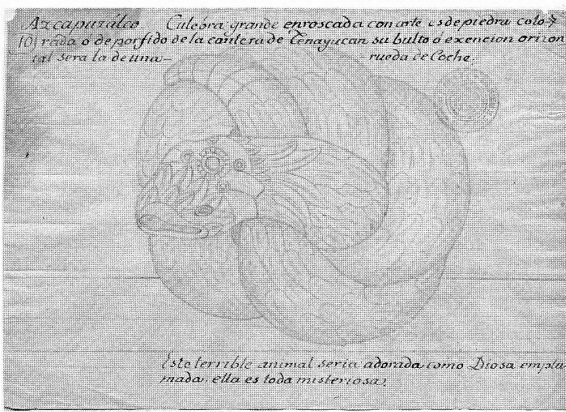 Azcapuzalco Culebra grande enroscada con arte es de piedra colo-
10) rada ó de porfido de la cantera de Tenayucan su bulto ó exencion orizon
tal sera la de una rueda de Coche.
Este terrible animal seria adorada como Diosa emplu-
mada, ella es toda misteriosa.